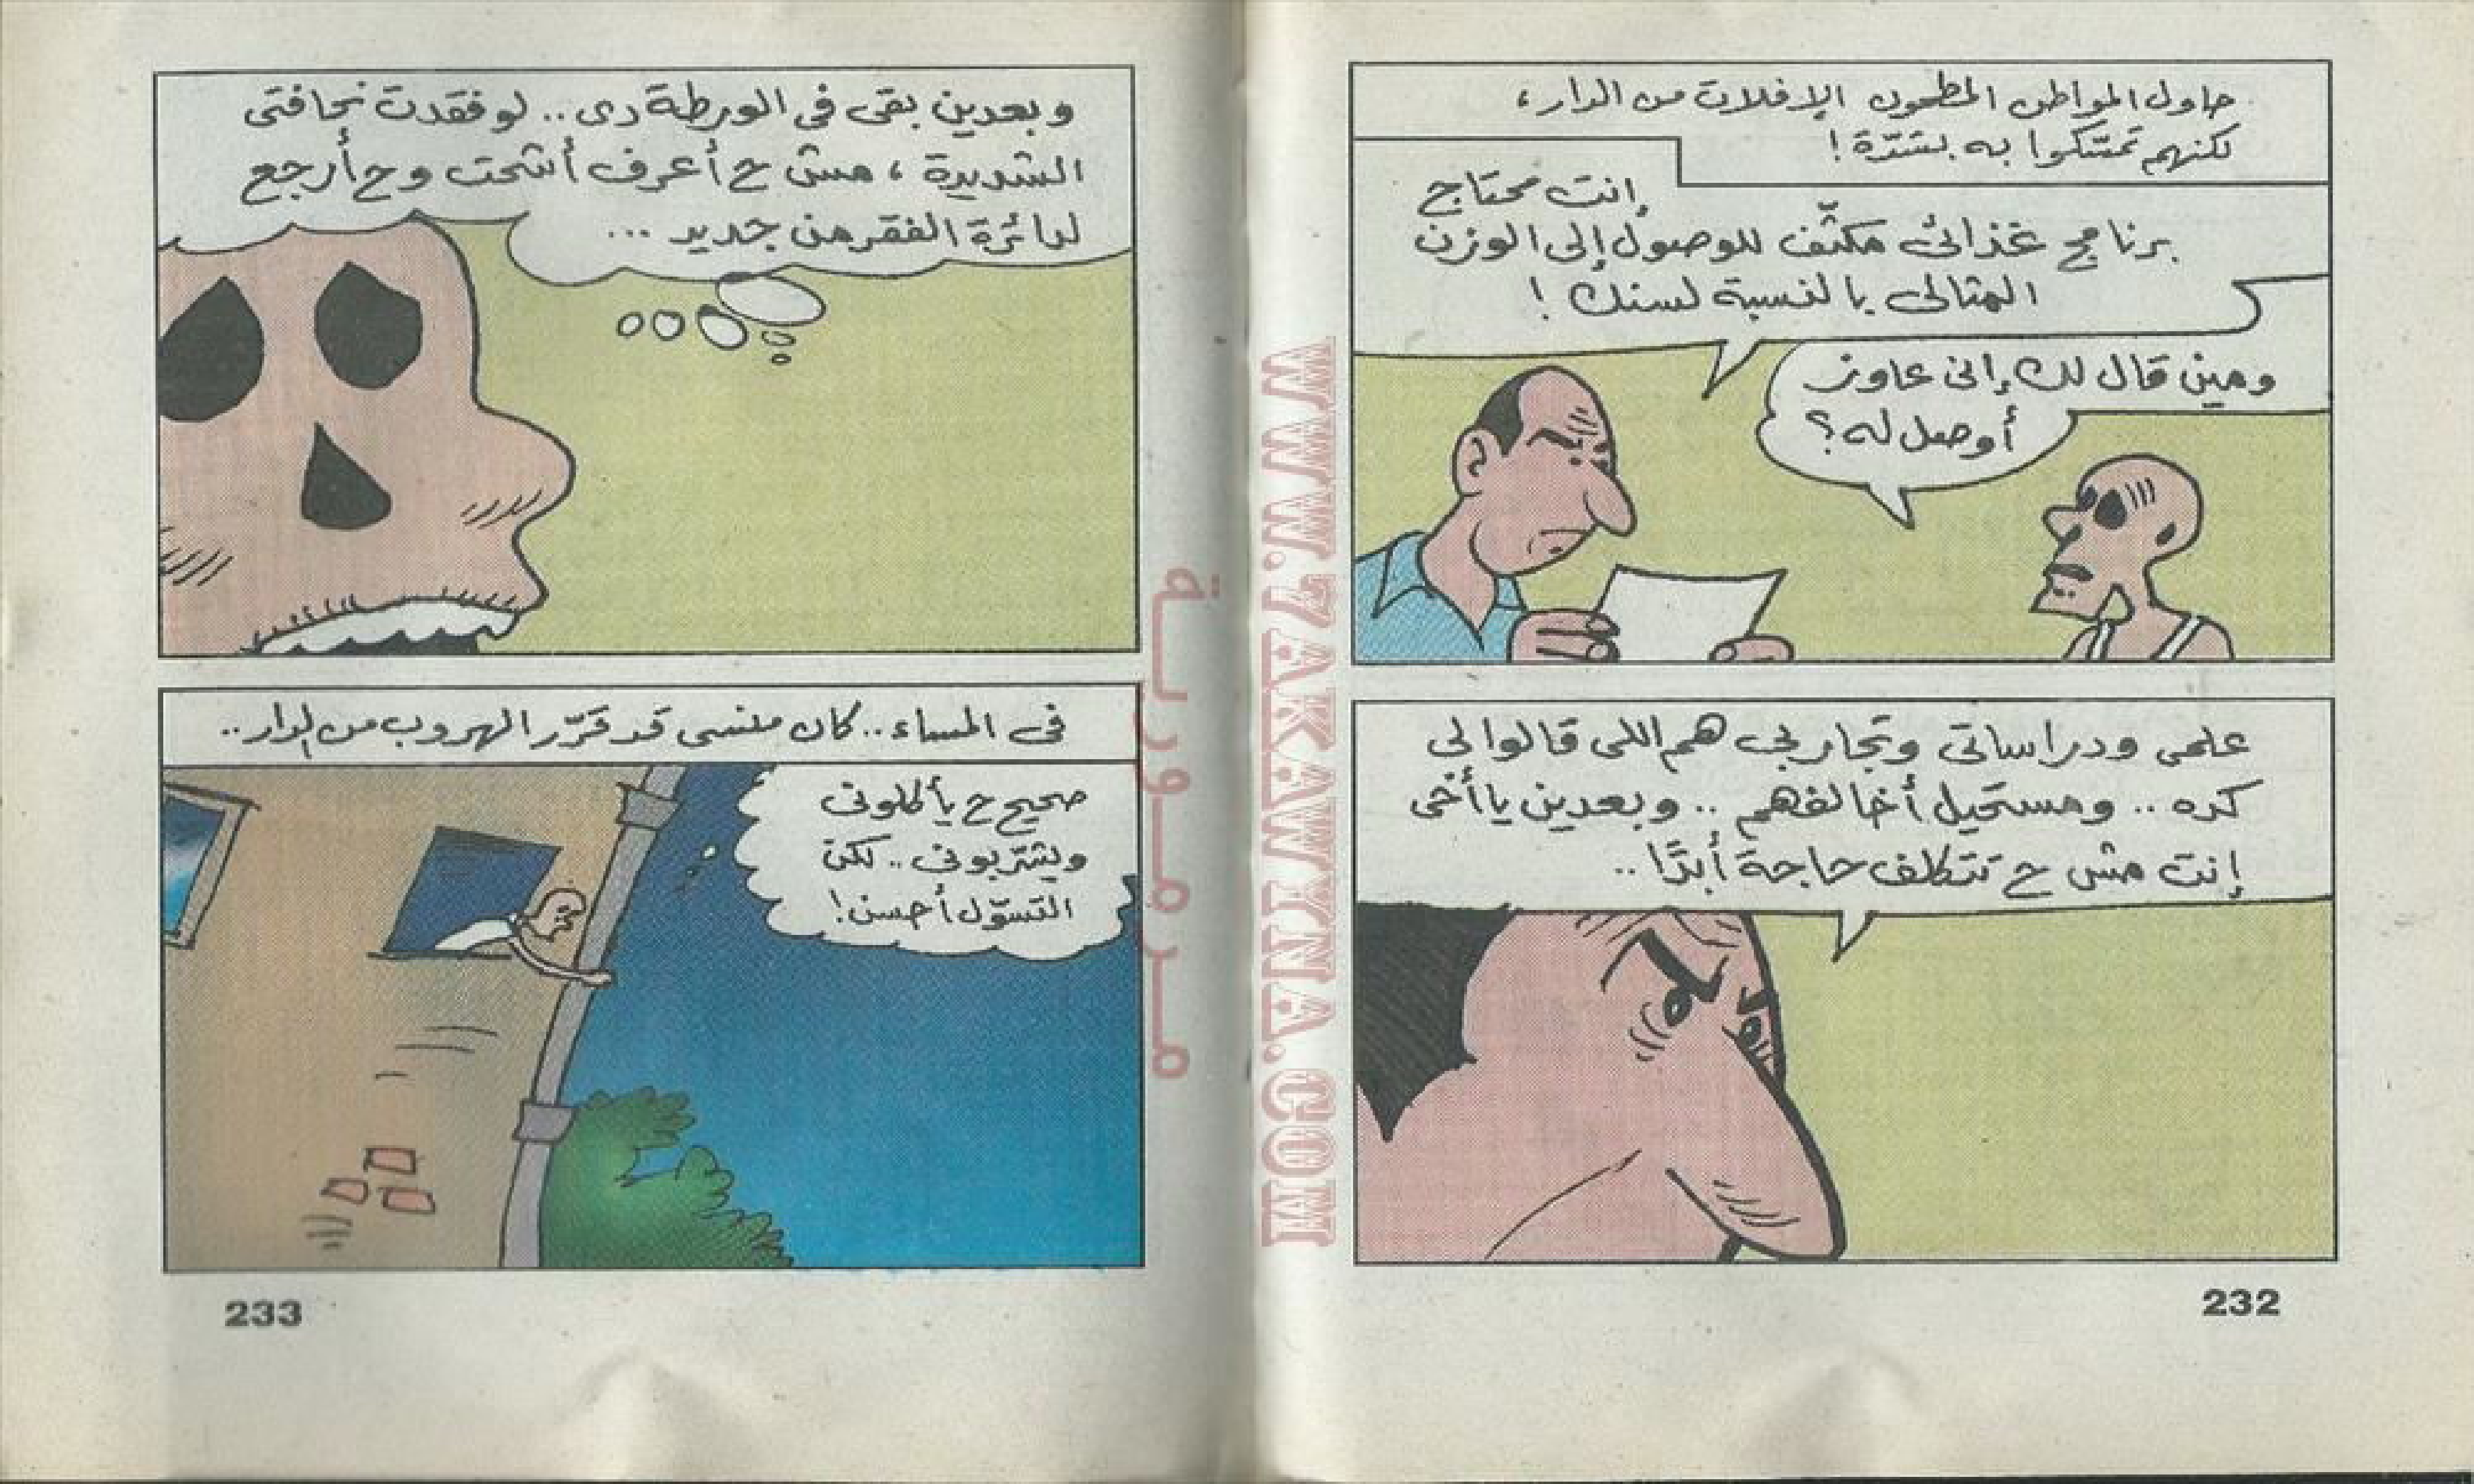 حاول المواطن المطحون الإفلات من الدار،
لكنهم تمسّكوا به بشدّة!
إنت محتاج
برنامج غذائى مكثّف للوصول إلى الوزن
المثالى بالنسبة لسنك!
ومين قال لك إنى عاوز
أوصل له؟
علمى ودراساتى وتجاربى هم اللى قالوا لى
كده .. ومستحيل أخالفهم .. وبعدين يا أخى
إنت مش ح تتكلف حاجة أبدًا ..
232
وبعدين بقى فى الورطة دى .. لو فقدت نحافتى
الشديدة، مش ح أعرف أشحت وح أرجع
لدائرة الفقر من جديد ...
فى المساء .. كان منسى قد قرّر الهروب من الدار ..
صحيح ح يأكلونى
ويشرّبونى .. لكن
التسوّل أحسن!
233
WWW.7AKAWYNA.COM
مرمورية